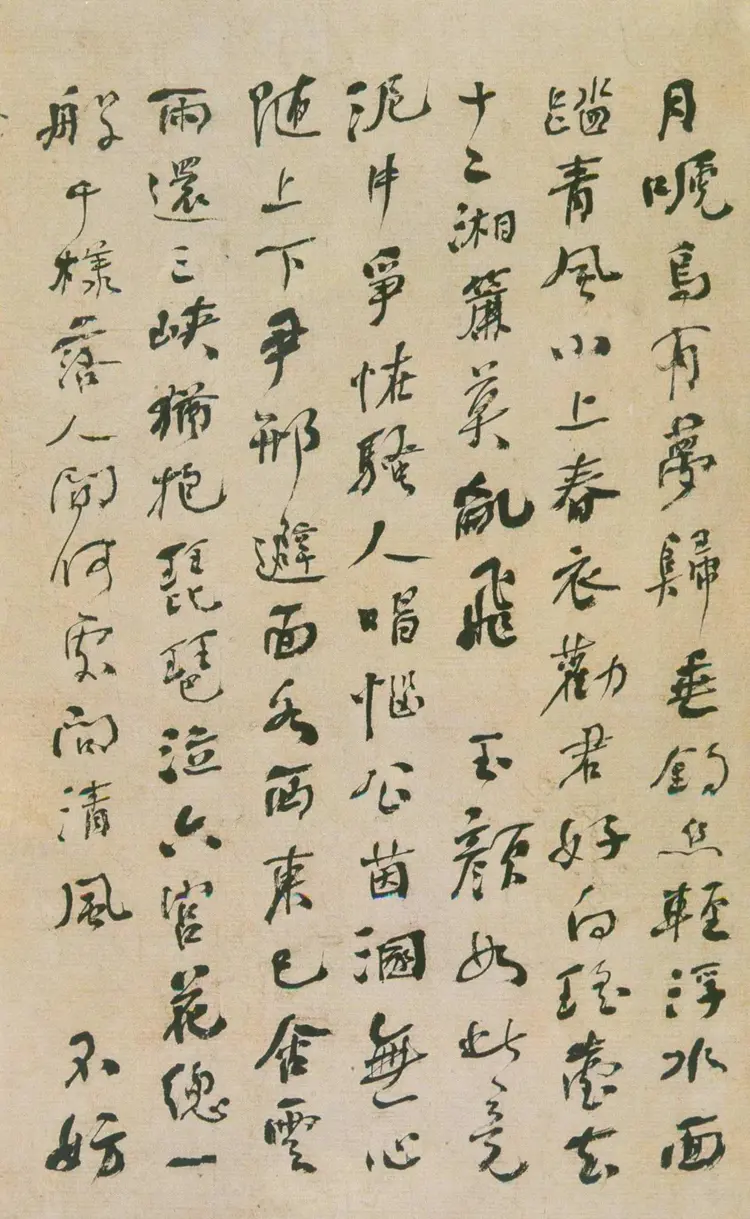 月嗁烏有夢歸垂鉤点輕浮水面
踏青風小上春衣勸君好向瑤臺去
十二湘簾莫亂飛 玉顏如此竟
泥中爭怪騷人唱惱公茵溷無心
随上下尹邢避面各西東已含雲
雨還三峽猶抱琵琶泣六宮花總一
般千樣落人間何處問清風 不妨